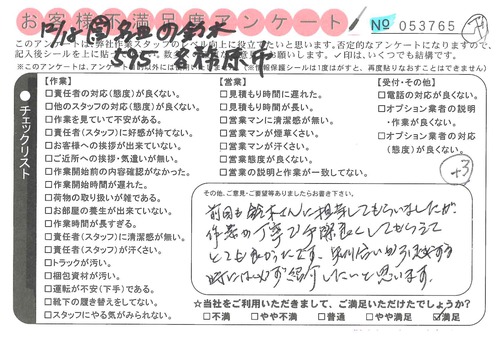 お客様不満足度アンケート
№ 053765
このアンケートは、弊社作業スタッフのレベル向上に役立てたいと思います。否定的なアンケートになりますので、
記入後シールを上に貼って
お願いします。✓印は、いくつでも結構です。
※このアンケートは、
(個人情報保護シールは1度はがすと、再度貼りなおすことはできません)
12/18
鈴木
595 各務原市
チェックリスト
【作業】
□責任者の対応(態度)が良くない。
□他のスタッフの対応(態度)が良くない。
□作業を見ていて不安がある。
□責任者(スタッフ)に好感が持てない。
□お客様への挨拶が出来ていない。
□ご近所への挨拶・気遣いが無い。
□作業開始前の内容確認がなかった。
□作業開始時間が遅れた。
□荷物の取り扱いが雑である。
□お部屋の養生が出来ていない。
□作業時間が長すぎる。
□責任者(スタッフ)に清潔感が無い。
□責任者(スタッフ)が汗くさい。
□トラックが汚い。
□梱包資材が汚い。
□運転が不安(下手)である。
□靴下の履き替えをしてない。
□スタッフにやる気がみられない。
【営業】
□見積もり時間に遅れた。
□見積もり時間が長い。
□営業マンに清潔感が無い。
□営業マンが煙草くさい。
□営業マンが汗くさい。
□営業態度が良くない。
□営業の説明と作業が一致してない。
【受付・その他】
□電話の対応が良くない。
□オプション業者の説明
・作業が良くない。
□オプション業者の対応
(態度)が良くない。
+3
その他、ご意見・ご要望等ありましたらお書き下さい。
前回も鈴木さんに担当してもらいましたが、
作業が丁寧で手際良くしてもらえて
とても良かったです。 引越する
時には必ず紹介したいと思います。
☆当社をご利用いただきまして、ご満足いただけたでしょうか?
□不満 □やや不満 □普通 □やや満足 ☑満足